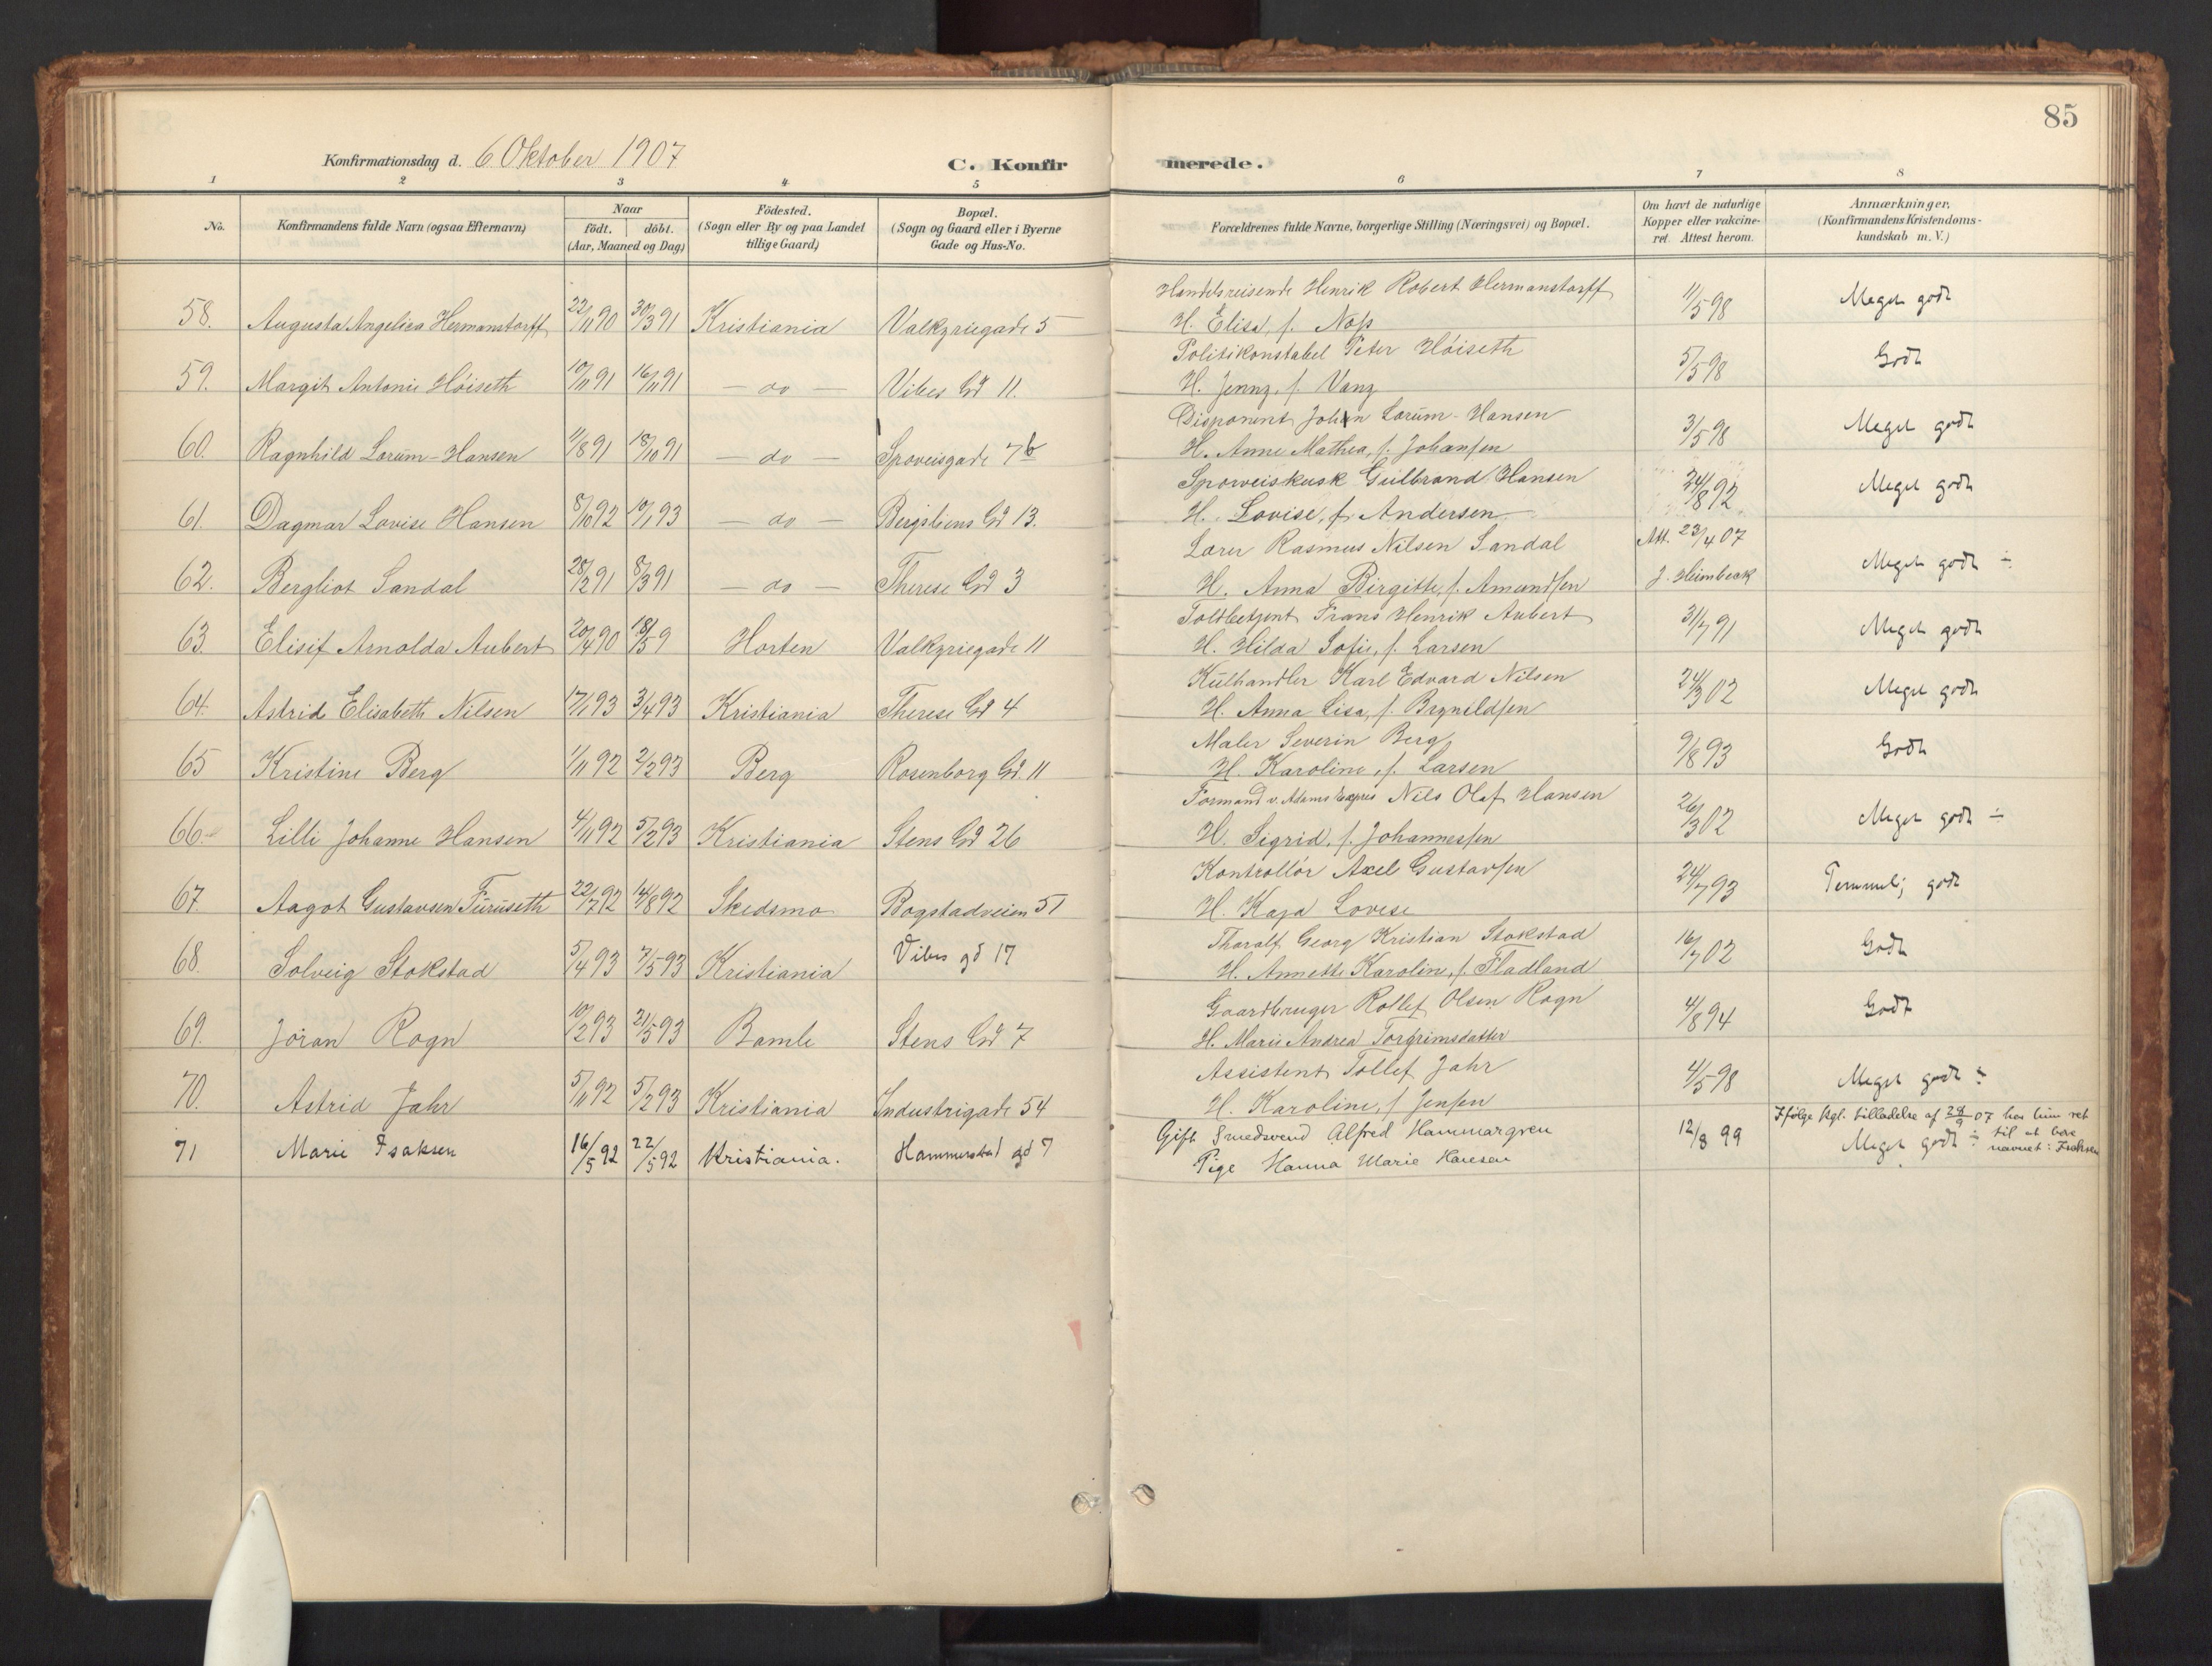 85
Konfirmationsdag d. 6 Oktober 1907 C. Konfirmerede.
1 2 3 4 5 6 7 8
No. Konfirmandens fulde Navn (ogsaa Efternavn) Naar födt. döbt. (Aar, Maaned og Dag) Födested. (Sogn eller By og paa Landet tillige Gaard) Bopæl. (Sogn og Gaard eller i Byerne Gade og Hus-No. Forældrenes fulde Navne, borgerlige Stilling (Næringsvei) og Bopæl. Om havt de naturlige Kopper eller vakcineret. Attest herom. Anmærkninger, (Konfirmandens Kristendomskundskab m. V.)
58. Augusta Angelica Hermanstorff 22/11 90 30/3 91 Kristiania Valkyriegade 5 Handelsreisende Henrik Robert Hermanstorff 11/5 98 Meget godt
H. Elisa, f. Nop
59. Margit Antonie Höiseth 10/11 91 16/11 91 — do — Vibes Gd 11. Politikonstabel Peter Höiseth 5/5 98 Godt
H. Jenny, f. Vang
60. Ragnhild Lorum-Hansen 11/8 91 18/10 91 — do — Sporveisgade 7b Disponent Johan Lorum-Hansen 3/5 98 Meget godt
H. Anne Mathea, f. Johansen
61. Dagmar Lovise Hansen 8/10 92 10/1 93 — do — Bergsliens Gd 13. Sporveiskusk Gulbrand Hansen 24/8 92 Meget godt
H. Lovise, f. Andersen
62. Bergliot Sandal 28/2 91 8/3 91 — do — Therese Gd 3 Lærer Rasmus Nilsen Sandal Att. 23/4 07 Meget godt ÷
H. Anna Birgitte, f. Amundsen J. Heimbeck
63. Elisif Arnolda Aubert 20/4 90 18/5 9 Horten Valkyriegade 11 Toldbetjent Frans Henrik Aubert 31/7 91 Meget godt
H. Hilda Sofie, f. Larsen
64. Astrid Elisabeth Nilsen 17/1 93 3/4 93 Kristiania Therese Gd 4 Kulhandler Karl Edvard Nilsen 24/3 02 Meget godt
H. Anna Lisa, f. Brynildsen
65 Kristine Berg 1/11 92 2/2 93 Berg Rosenborg Gd. 11 Maler Severin Berg 9/8 93 Godt
H. Karoline, f. Larsen
66. Lilli Johanne Hansen 4/11 92 5/2 93 Kristiania Stens Gd 26 Formand v. Adams Expres Nils Olaf Hansen 26/3 02 Meget godt ÷
H. Sigrid, f. Johannessen
67. Aagot Gustavsen Furuseth 22/7 92 14/8 92 Skedsmo Bogstadveien 51 Kontrollör Axel Gustavsen 24/7 93 Temmelj godt
H. Kaja Lovise
68. Solveig Stokstad 5/4 93 7/5 93 Kristiania Vibes gd 17 Tharalf Georg Kristian Stokstad 16/7 02 Godt
H. Annette Karolin, f. Fladland
69. Jöran Rogn 10/2 93 21/5 93 Bamle Stens Gd 7 Gaardbruger Rollef Olsen Rogn 4/8 94 Godt
H. Marie Andrea Torgrimsdatter
70. Astrid Jahr 5/11 92 5/2 93 Kristiania Industrigade 54 Assistent Tollef Jahr 4/5 98 Meget godt ÷
H. Karoline, f. Jensen
71 Marie Isaksen 16/5 92 22/5 92 Kristiania. Hammerstad gd 7 Gift Smedsvend Alfred Hammargren 12/8 99 Meget godt ÷
Pige Hanna Marie Hansen
Ifølge kgl. tilladelse af 28/9 07 har hun ret til at bere navnet: Isaksen